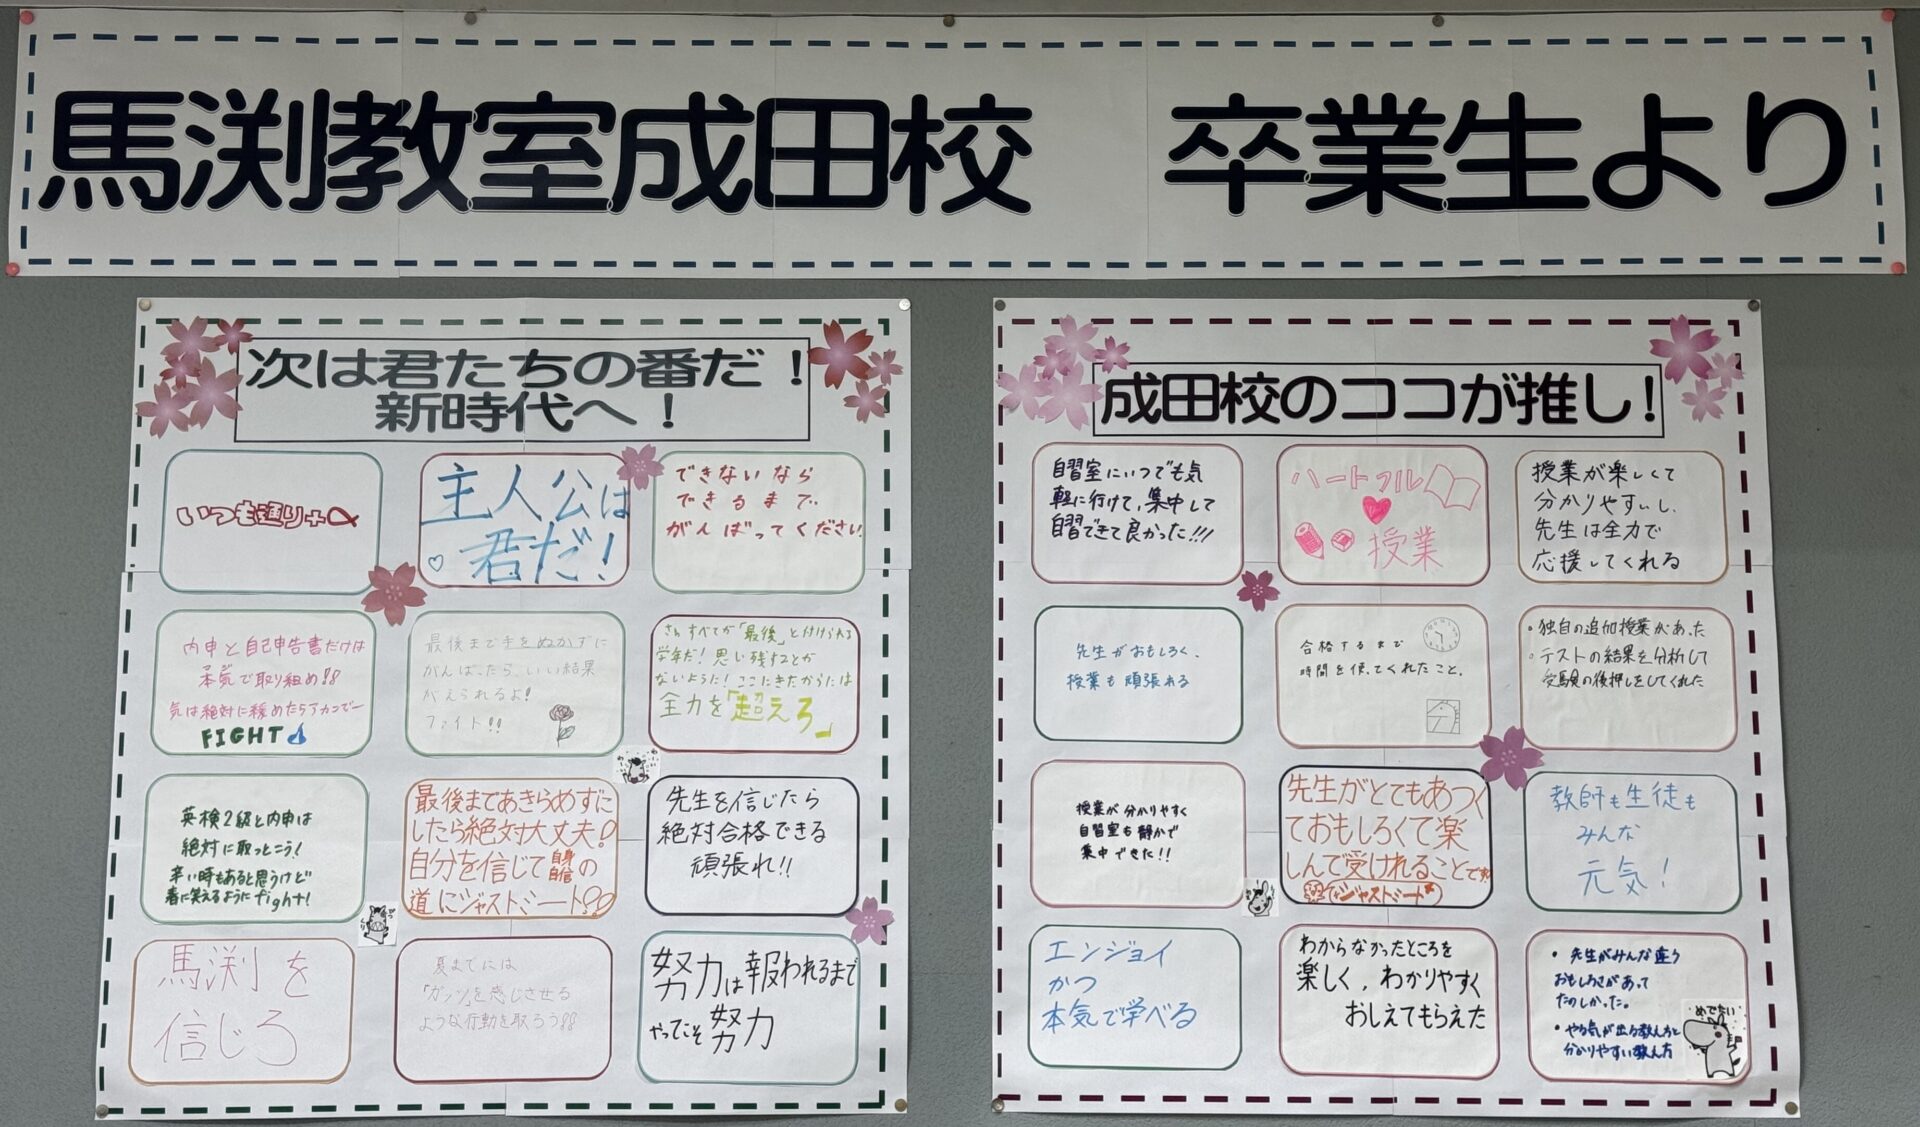 馬渕教室成田校 卒業生より
次は君たちの番だ！
新時代へ！
いつも通り+α
主人公は
君だ！
できないなら
できるまで
がんばってください
内申と自己申告書だけは
本気で取り組め!!
気は絶対に緩めたらアカンでー
FIGHT
最後まで手をぬかずに
がんばったら、いい結果
がえられるよ!
ファイト!!
さぁ すべてが「最後」と付けられる
学年だ！思い残すことが
ないように！ここにきたからには
全力を「超えろ」
英検2級と内申は
絶対に取っとこう!
辛い時もあると思うけど
春に笑えるようにfight!
最後まであきらめずに
したら絶対大丈夫!
自分を信じて自身
自信の
道にジャストミート!!
先生を信じたら
絶対合格できる
頑張れ!!
馬渕を
信じろ
夏までには
「ガッツ」を感じさせる
ような行動を取ろう!!
努力は報われるまで
やってこそ努力
成田校のココが推し!
自習室にいつでも気
軽に行けて、集中して
自習できて良かった!!!
ハートフル
授業
授業が楽しくて
分かりやすいし、
先生は全力で
応援してくれる
先生がおもしろく、
授業も頑張れる
合格するまで
時間を使ってくれたこと。
・独自の追加授業があった
・テストの結果を分析して
受験の後押しをしてくれた
授業が分かりやすく
自習室も静かで
集中できた!!
先生がとてもあつく
ておもしろくて楽
しんで受けれることです
(ジャストミート)
教師も生徒も
みんな
元気！
エンジョイ
かつ
本気で学べる
わからなかったところを
楽しく、わかりやすく
おしえてもらえた
・先生がみんな違う
おもしろさがあって
たのしかった。
・やる気が出る教え方と
分かりやすい教え方
めでたい